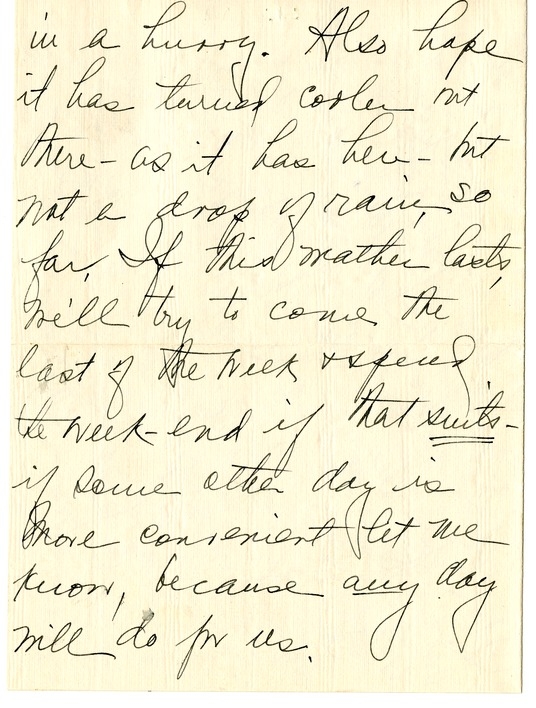 in a hurry. Also hope
it has turned cooler out
there - as it has here - but
not a drop of rain, so
far. If this weather lasts,
we'll try to come the
last of the week & spend
the week-end if that suits -
if some other day is
more convenient let me
know, because any day
will do for us.